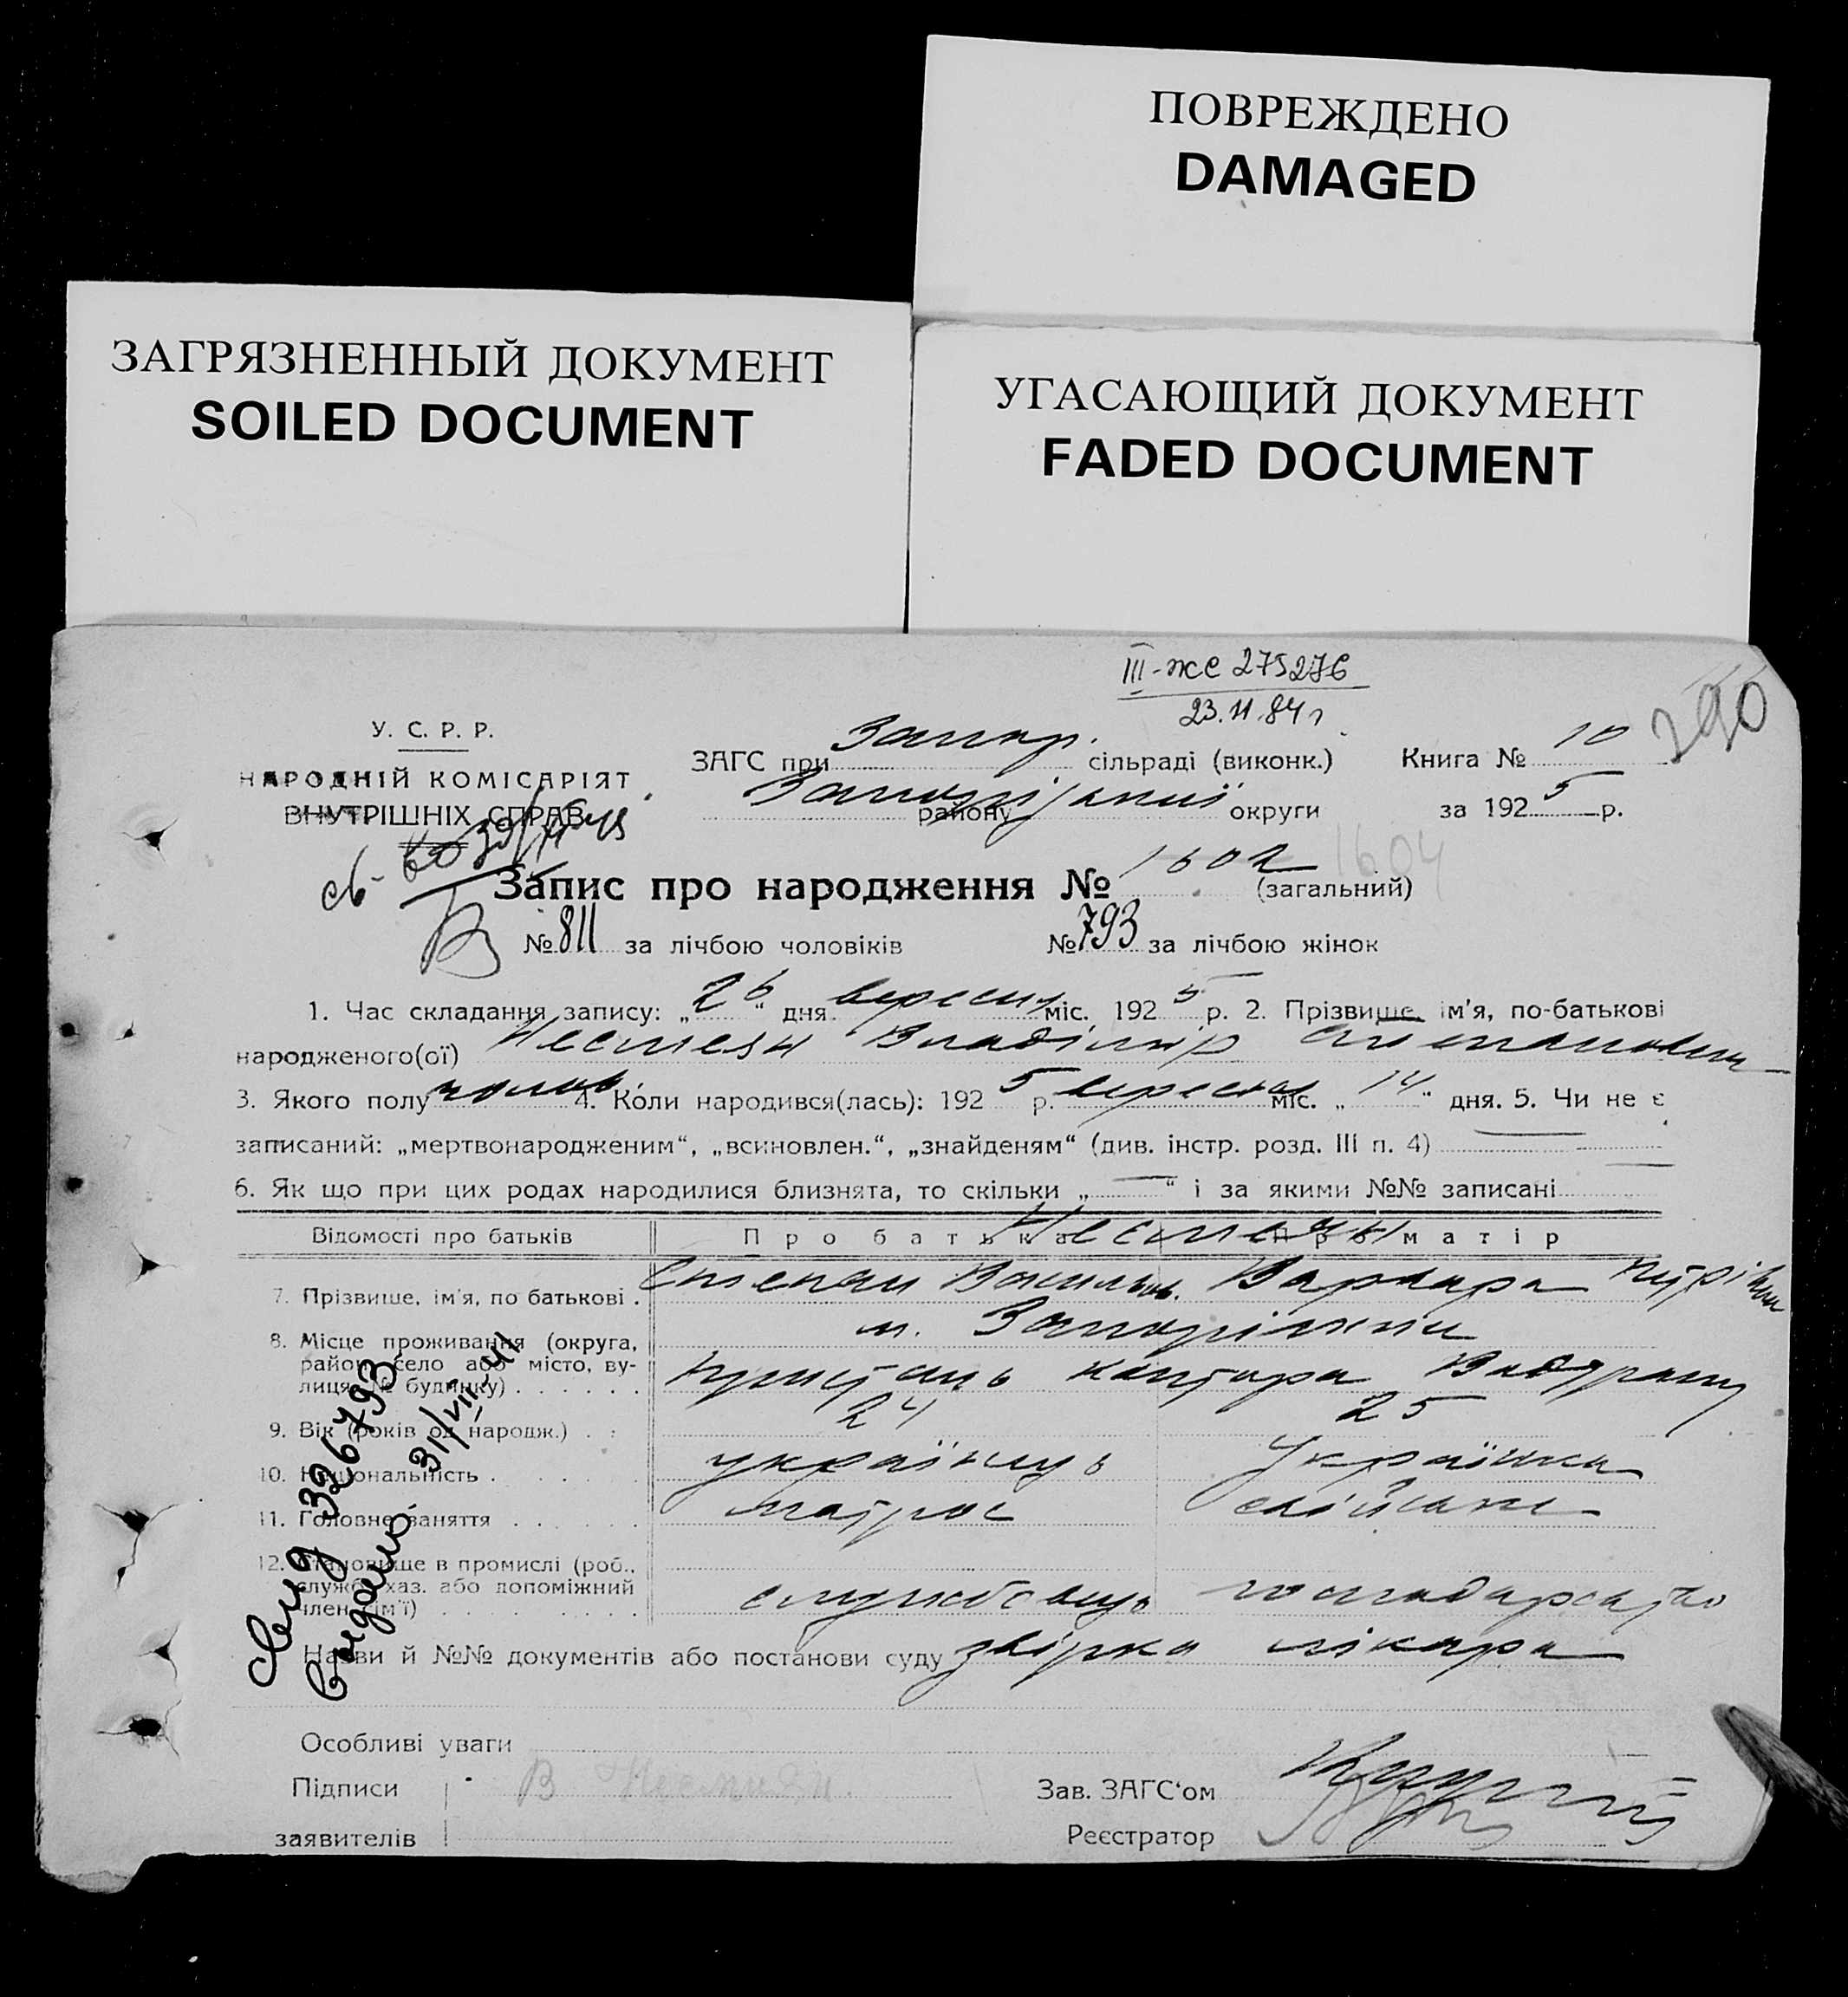 ПОВРЕЖДЕНО
DAMAGED
ЗАГРЯЗНЕННЫЙ ДОКУМЕНТ
SOILED DOCUMENT
УГАСАЮЩИЙ ДОКУМЕНТ
FADED DOCUMENT
III-ЖС 275276
23.11.84 г
290
У. С. Р. Р.
НАРОДНІЙ КОМІСАРІЯТ
ВНУТРІШНІХ СПРАВ
ЗАГС при Запор. сільраді (виконк.) Книга № 10
району округи за 1925 р.
Запис про народження № 1602 (загальний) 1604
№ 811 за лічбою чоловіків № 793 за лічбою жінок
1. Час складання запису: „26“ дня вересня міс. 1925 р. 2. Прізвище, ім'я, по-батькові
народженого(ої) Владімір Степанович
3. Якого полу чолов. 4. Коли народився(лась): 1925 р. вересня міс. „14“ дня. 5. Чи не є
записаний: „мертвонародженим“, „всиновлен.“, „знайденям“ (див. інстр. розд. III п. 4)
6. Як що при цих родах народилися близнята, то скільки „—“ і за якими №№ записані
Відомості про батьків Про батька Про матір
7. Прізвище, ім'я, по батькові . Степан Васильов. Варвара
8. Місце проживання (округа, район, село або місто, вулиця, № будинку) м. Запоріжжя
Пристань контора
9. Вік (років од народж.) 24 25
10. Національність українець Українка
11. Головне заняття матрос
12. Становище в промислі (роб., службов. хаз. або допоміжний член сім'ї) службовець господарство
Назви й №№ документів або постанови суду лікаря
Свид 326793
Выдано 31/VII-41
Особливі уваги
Підписи
заявителів
Зав. ЗАГС'ом
Реєстратор